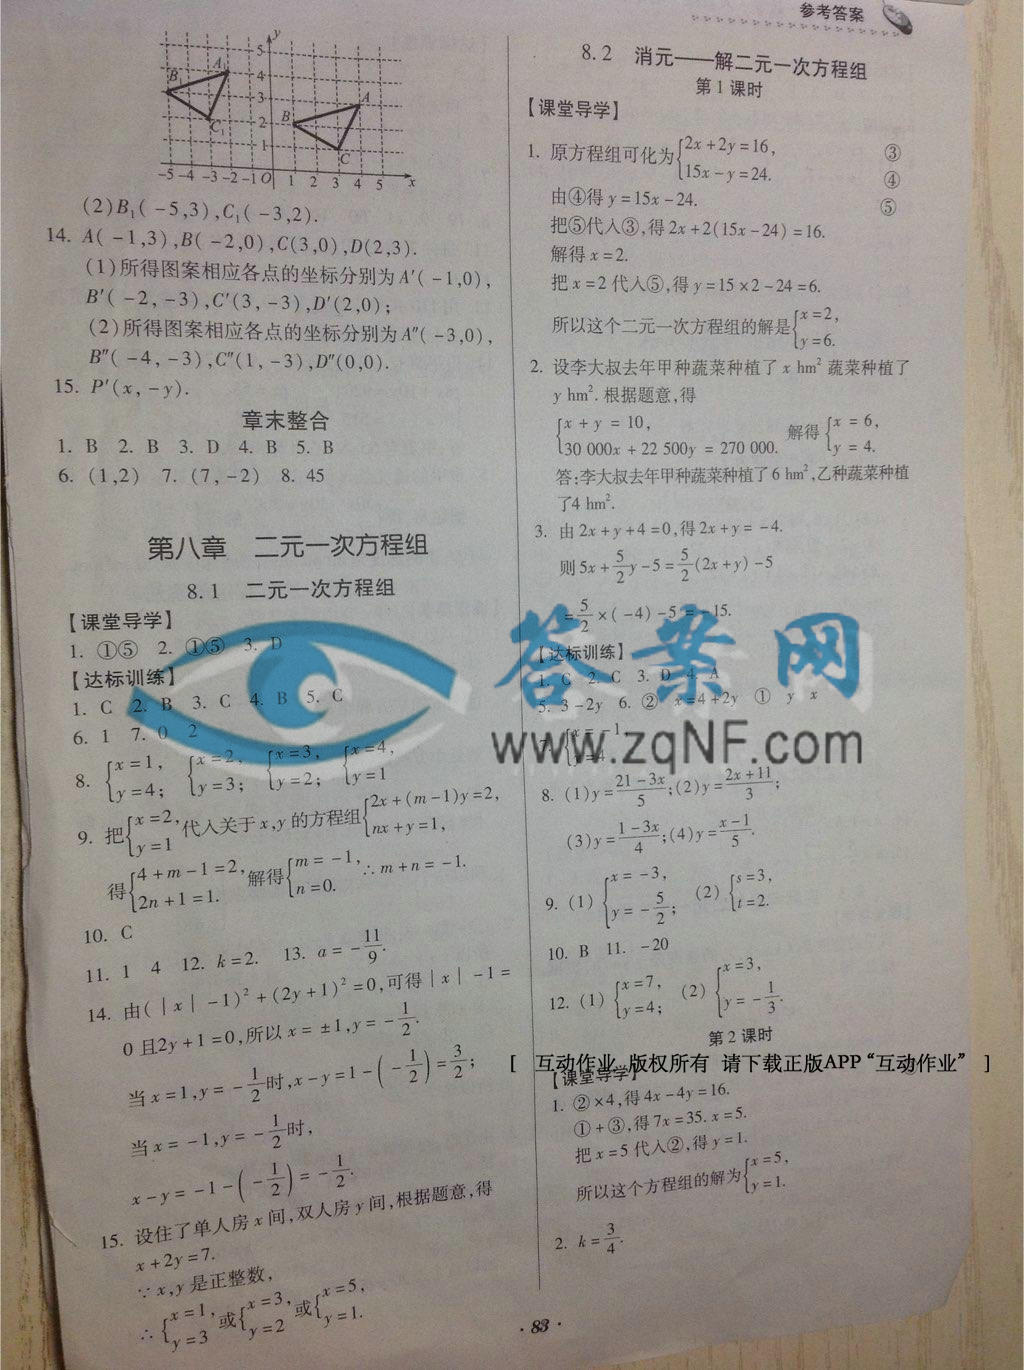 参考答案
y
5
4
3
2
1
-5 -4 -3 -2 -1 O 1 2 3 4 5 x
B A₁ C₁ A B C
(2)B₁(-5,3),C₁(-3,2).
14. A(-1,3),B(-2,0),C(3,0),D(2,3).
(1)所得图案相应各点的坐标分别为A′(-1,0),
B′(-2,-3),C′(3,-3),D′(2,0);
(2)所得图案相应各点的坐标分别为A″(-3,0),
B″(-4,-3),C″(1,-3),D″(0,0).
15. P′(x,-y).
章末整合
1. B 2. B 3. D 4. B 5. B
6. (1,2) 7. (7,-2) 8. 45
第八章 二元一次方程组
8.1 二元一次方程组
【课堂导学】
1. ①⑤ 2. ①⑤ 3. D
【达标训练】
1. C 2. B 3. C 4. B 5. C
6. 1 7. 0 2
8. {x=1, y=4; {x=2, y=3; {x=3, y=2; {x=4, y=1
9. 把{x=2, y=1 代入关于x,y的方程组{2x+(m-1)y=2, nx+y=1,
得{4+m-1=2, 2n+1=1. 解得{m=-1, n=0. ∴m+n=-1.
10. C
11. 1 4 12. k=2. 13. a=-11/9.
14. 由(|x|-1)²+(2y+1)²=0,可得|x|-1=
0且2y+1=0,所以x=±1,y=-1/2.
当x=1,y=-1/2时,x-y=1-(-1/2)=3/2;
当x=-1,y=-1/2时,
x-y=-1-(-1/2)=-1/2.
15. 设住了单人房x间,双人房y间,根据题意,得
x+2y=7.
∵x,y是正整数,
∴{x=1, y=3 或{x=3, y=2 或{x=5, y=1.
8.2 消元——解二元一次方程组
第1课时
【课堂导学】
1. 原方程组可化为{2x+2y=16, ③ 15x-y=24. ④
由④得y=15x-24. ⑤
把⑤代入③,得2x+2(15x-24)=16.
解得x=2.
把x=2代入⑤,得y=15×2-24=6.
所以这个二元一次方程组的解是{x=2, y=6.
2. 设李大叔去年甲种蔬菜种植了x hm² 蔬菜种植了
y hm². 根据题意,得
{x+y=10, 30 000x+22 500y=270 000. 解得{x=6, y=4.
答:李大叔去年甲种蔬菜种植了6 hm²,乙种蔬菜种植
了4 hm².
3. 由2x+y+4=0,得2x+y=-4.
则5x+5/2y-5=5/2(2x+y)-5
=5/2×(-4)-5=-15.
【达标训练】
1. C 2. C 3. D 4. A
5. 3-2y 6. ② x=4+2y ① y x
7. {x=-1
8. (1)y=21-3x/5;(2)y=2x+11/3;
(3)y=1-3x/4;(4)y=x-1/5.
9. (1){x=-3, y=-5/2; (2){s=3, t=2.
10. B 11. -20
12. (1){x=7, y=4; (2){x=3, y=-1/3.
第2课时
[ 互动作业 版权所有 请下载正版APP“互动作业” ]
【课堂导学】
1. ②×4,得4x-4y=16.
①+③,得7x=35. x=5.
把x=5代入②,得y=1.
所以这个方程组的解为{x=5, y=1.
2. k=3/4.
· 83 ·
答案网
www.zqNF.com